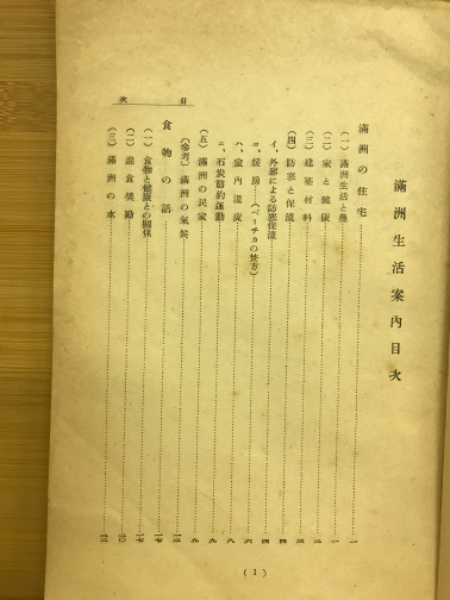 滿洲生活案內目次
滿洲の住宅……一
(一) 滿洲生活と
(二) 家と健康
(三) 建築材料
(四) 防寒と保溫……四
イ、外廓による防寒保溫……四
ロ、煖房……(ペーチカの焚方)……六
ハ、室內溫度……八
ニ、石炭節約運動……九
(五) 滿洲の民家……九
(參考) 滿洲の氣候
食物の話……一七
(一) 食物と健康との關係……一七
(二) 混食奬勵……二〇
(三) 滿洲の水
目次
(1)